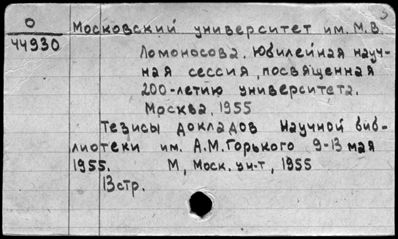 О
44930
Московский университет им. М.В.
Ломоносова. Юбилейная науч-
ная сессия, посвященная
200-летию университета.
Москва, 1955
Тезисы докладов Научной биб-
лиотеки им. А.М. Горького 9-13 мая
1955. М, Моск. ун-т, 1955
13 стр.